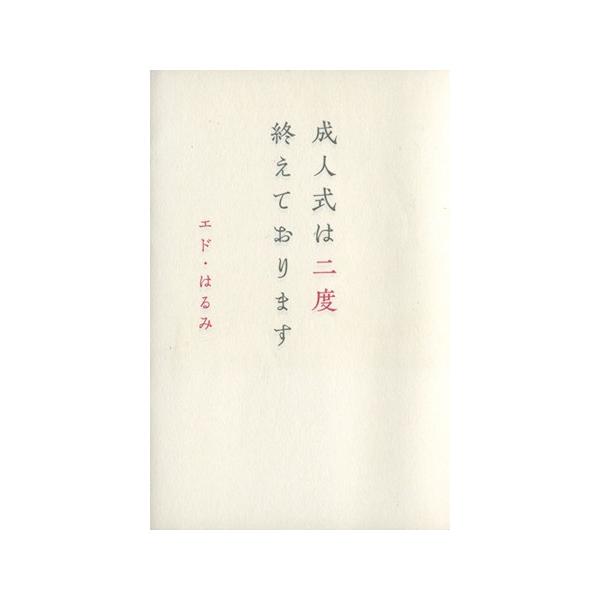 成人式は二度
終えております
エド・はるみ